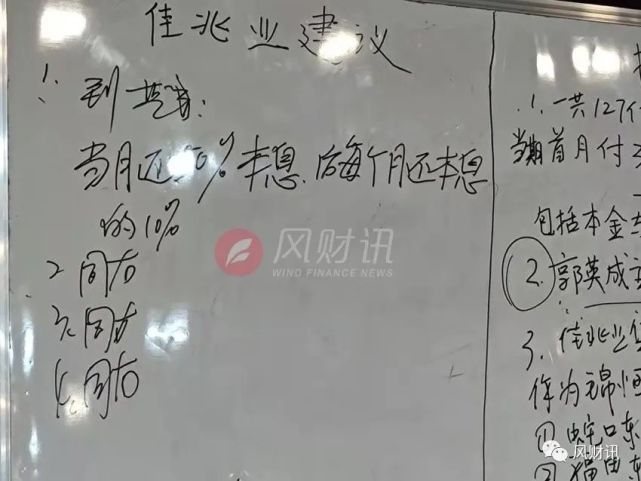 佳兆业建议
1. 到节点:
当月还10%本息.后每个月还本息
的10%
2. 同右
3. 同右
4. 同右
1. 一共127
当期首月付
包括本金
2. 郭英成
3. 佳兆业
作为锦恒
① 蛇口东
②
风财讯
WIND FINANCE NEWS
风财讯